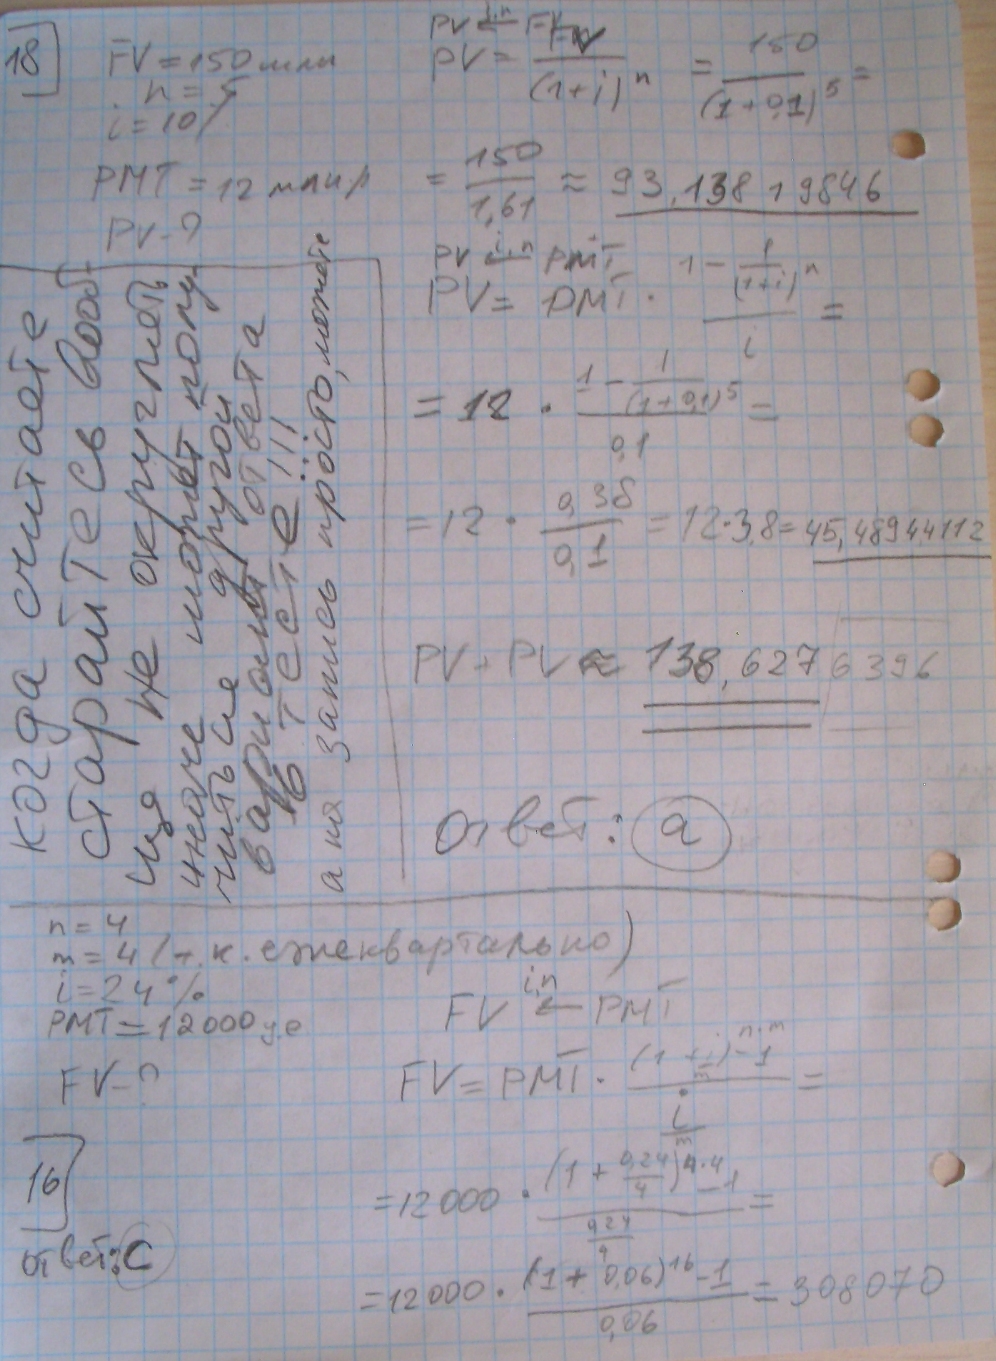 18
FV = 150 млн
n = 5
i = 10%
PMT = 12 млн
PV - ?
PV ←i,n FV
PV = FV/(1+i)^n = 150/(1+0,1)^5 =
= 150/1,61 ≈ 93,13819846
PV ←i,n PMT
PV = PMT · (1 - 1/(1+i)^n)/i =
= 12 · (1 - 1/(1+0,1)^5)/0,1 =
= 12 · 0,38/0,1 = 12·3,8 = 45,48944112
PV + PV ≈ 138,6276396
Ответ: а
когда считаете
старайтесь вооб
ще не округлять
иначе может полу-
читься другой
вариант ответа
в тесте!!!
а на запись просто, можете
n = 4
m = 4 (т.к. ежеквартально)
i = 24%
PMT = 12000 у.е
FV - ?
16
ответ: С
FV ←i,n PMT
FV = PMT · ((1 + i/m)^n·m - 1)/(i/m) =
= 12000 · ((1 + 0,24/4)^4·4 - 1)/(0,24/4) =
= 12000 · ((1 + 0,06)^16 - 1)/0,06 = 308070